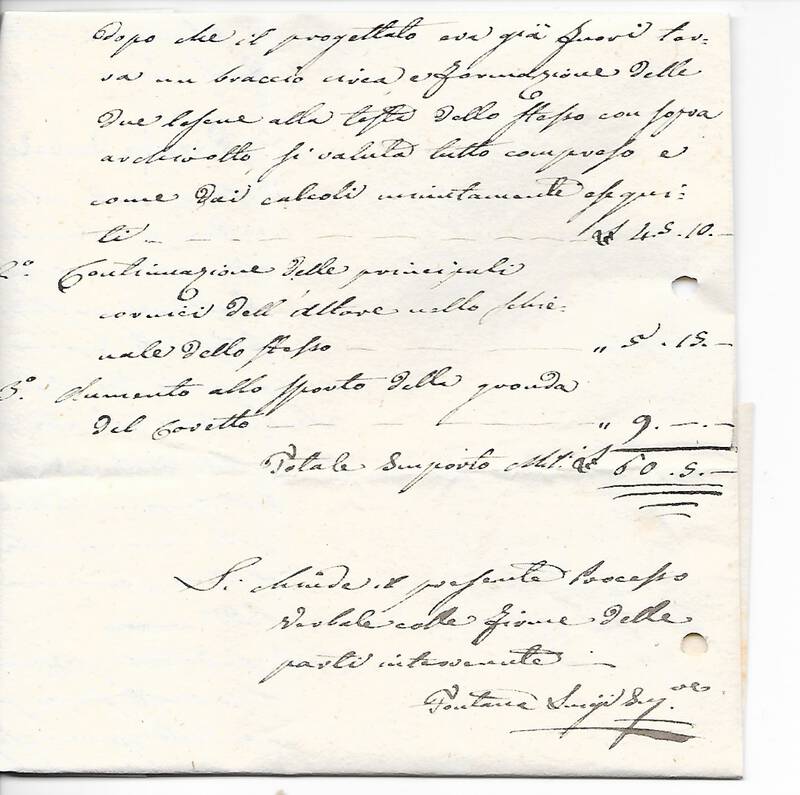 dopo che il progettato era già fuori ter-
ra un braccio circa, e formazione delle
due lesene alla testa dello stesso con sopra
archivolto, si valuta tutto compreso e
come dai calcoli minutamente esegui-
ti £ 45.10.-
2°. Continuazione delle principali
cornici dell'Altare nello schie-
nale dello stesso " 5.15.-
3°. Aumento allo sporto della gronda
del Coretto " 9.-.-
Totale Importo Mil.i £ 60.5.-
Si chiude il presente Processo
Verbale colle firme delle
parti intervenute.
Fontana Luigi Ing.re